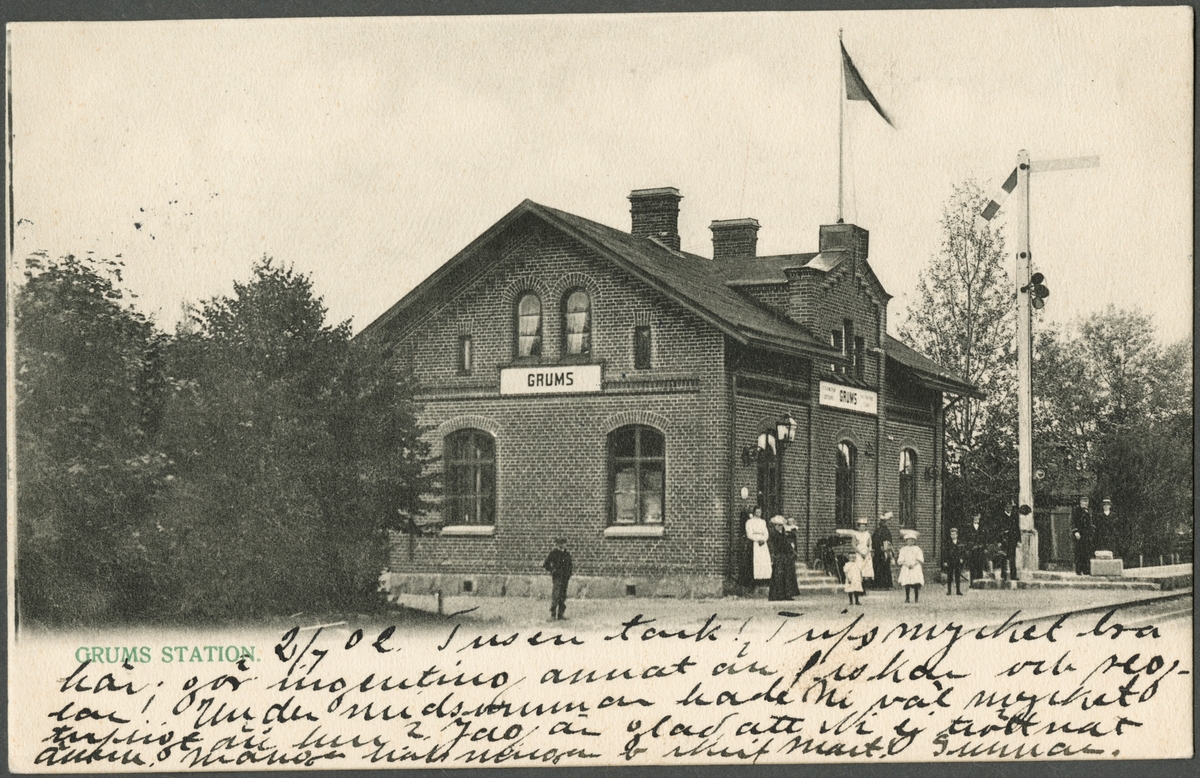 GRUMS
GRUMS
GRUMS STATION.
2/7 02. Tusen tack! Trifs mycket bra
här; gör ingenting annat än fiskar och seg-
lar! Under midsommar hade Ni väl mycket
än hur? Jag är glad att Ni ej tröttnat
ännu. Många hälsningar Gunnar.